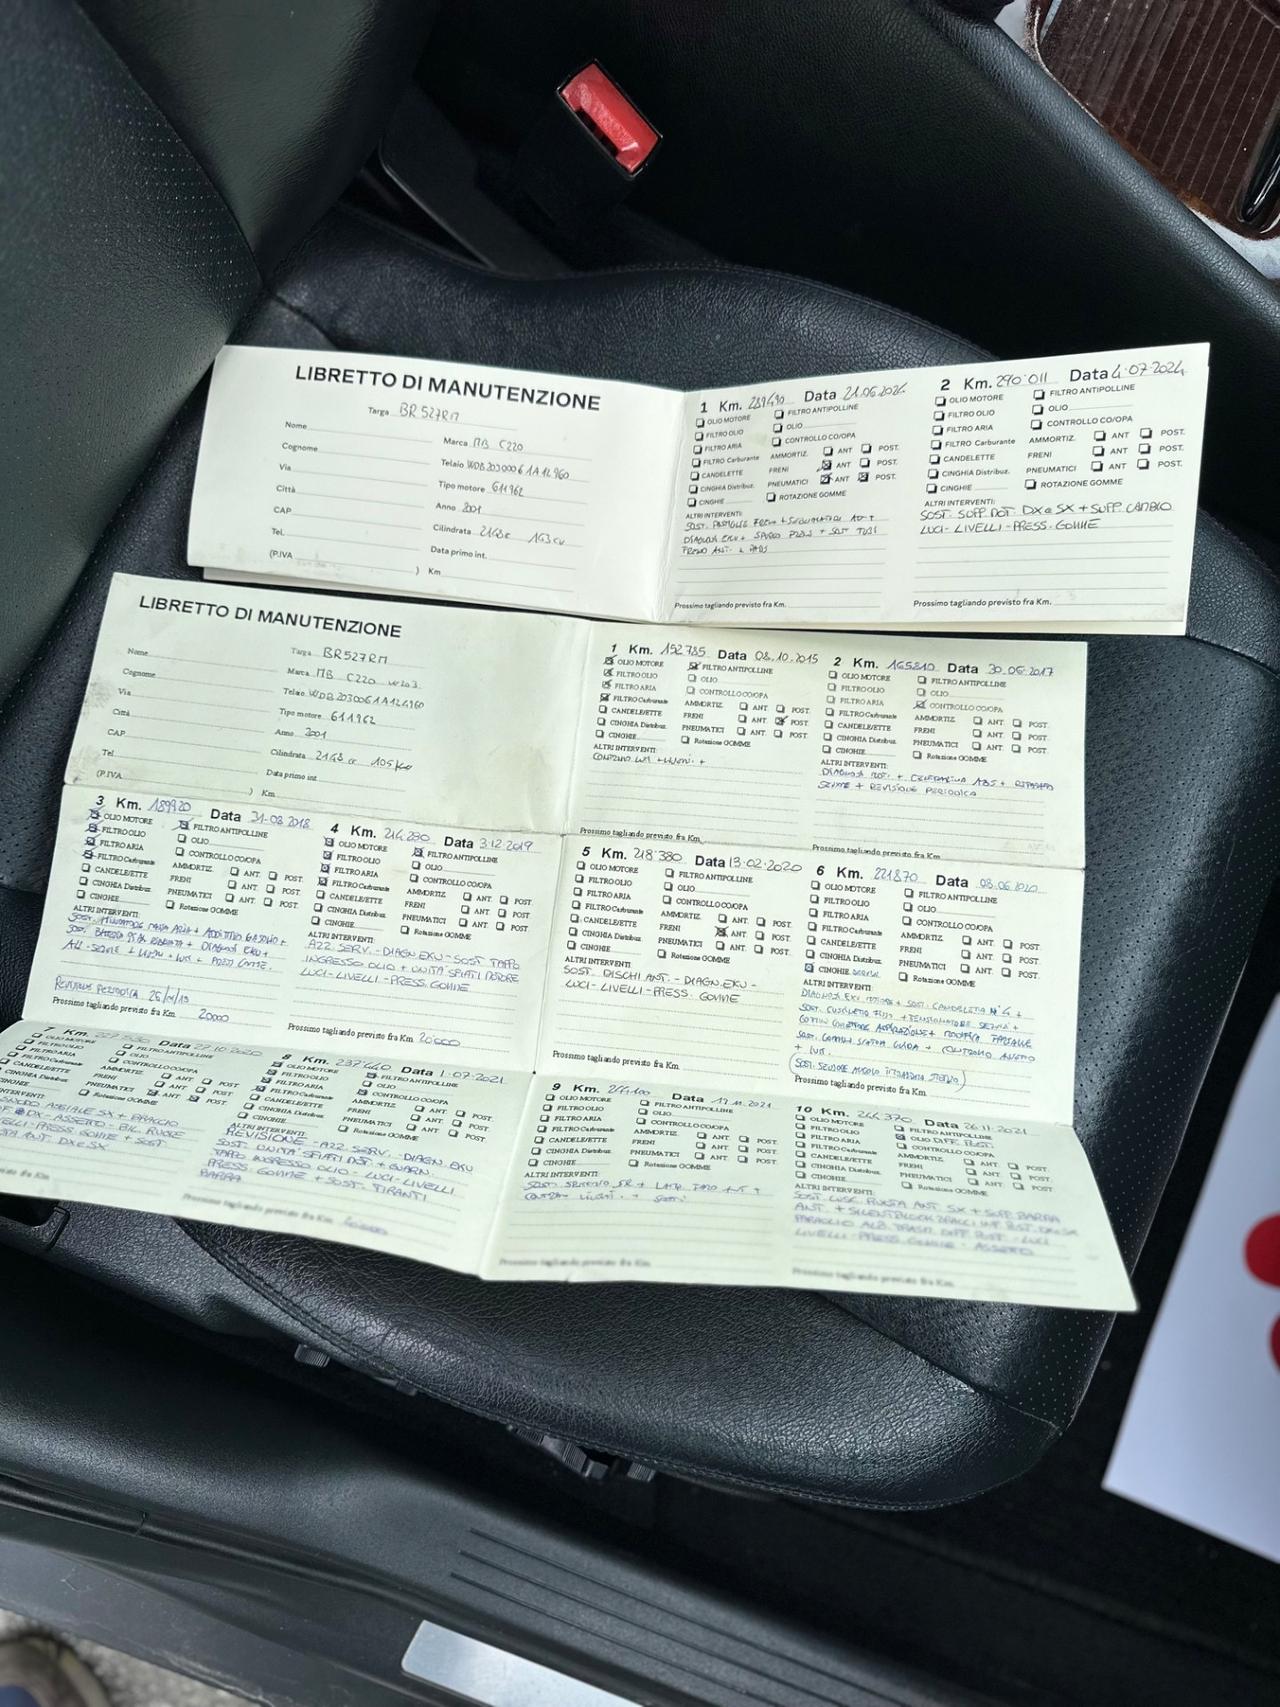 LIBRETTO DI MANUTENZIONE
Targa BR527RM
Nome
Marca MB C220
Cognome
Telaio WDB2030061A124960
Via
Tipo motore 611962
Città
Anno 2001
CAP
Cilindrata 2148cc 143cv
Tel.
Data primo int.
(P.IVA )
Km
1 Km. 289490 Data 21.06.2024
OLIO MOTORE
FILTRO ANTIPOLLINE
FILTRO OLIO
OLIO
FILTRO ARIA
CONTROLLO CO/OPA
FILTRO Carburante
AMMORTIZ. ANT POST.
CANDELETTE
FRENI ANT POST.
CINGHIA Distribuz.
PNEUMATICI ANT POST.
CINGHIE
ROTAZIONE GOMME
ALTRI INTERVENTI:
SOST. PASTIGLIE FRENO +
DIAGNOSI EKU + SPURGO + SOST TUBI
FRENO ANT.
Prossimo tagliando previsto fra Km.
2 Km. 290.011 Data 4.07.2024
OLIO MOTORE
FILTRO ANTIPOLLINE
FILTRO OLIO
OLIO
FILTRO ARIA
CONTROLLO CO/OPA
FILTRO Carburante
AMMORTIZ. ANT POST.
CANDELETTE
FRENI ANT POST.
CINGHIA Distribuz.
PNEUMATICI ANT POST.
CINGHIE
ROTAZIONE GOMME
ALTRI INTERVENTI:
SOST. SUPP. MOT. DX e SX + SUPP. CAMBIO
LUCI - LIVELLI - PRESS. GOMME
Prossimo tagliando previsto fra Km.
LIBRETTO DI MANUTENZIONE
Targa BR527RM
Nome
Marca MB C220 W203
Cognome
Telaio WDB2030061A124960
Via
Tipo motore 611962
Città
Anno 2001
CAP
Cilindrata 2148 cc 105 Kw
Tel.
Data primo int.
(P.IVA )
Km
1 Km. 152785 Data 08.10.2015
OLIO MOTORE
FILTRO ANTIPOLLINE
FILTRO OLIO
OLIO
FILTRO ARIA
CONTROLLO CO/OPA
FILTRO Carburante
AMMORTIZ. ANT. POST.
CANDELE/ETTE
FRENI ANT. POST.
CINGHIA Distribuz.
PNEUMATICI ANT. POST.
CINGHIE
Rotazione GOMME
ALTRI INTERVENTI:
CONTROLLO LUCI + LIVELLI +
Prossimo tagliando previsto fra Km.
2 Km. 165810 Data 30.06.2017
OLIO MOTORE
FILTRO ANTIPOLLINE
FILTRO OLIO
OLIO
FILTRO ARIA
CONTROLLO CO/OPA
FILTRO Carburante
AMMORTIZ. ANT. POST.
CANDELE/ETTE
FRENI ANT. POST.
CINGHIA Distribuz.
PNEUMATICI ANT. POST.
CINGHIE
Rotazione GOMME
ALTRI INTERVENTI:
DIAGNOSI MOT. + CENTRALINA ABS +
+ REVISIONE PERIODICA
Prossimo tagliando previsto fra Km.
3 Km. 189920 Data 31-08-2018
OLIO MOTORE
FILTRO ANTIPOLLINE
FILTRO OLIO
OLIO
FILTRO ARIA
CONTROLLO CO/OPA
FILTRO Carburante
AMMORTIZ. ANT. POST.
CANDELE/ETTE
FRENI ANT. POST.
CINGHIA Distribuz.
PNEUMATICI ANT. POST.
CINGHIE
Rotazione GOMME
ALTRI INTERVENTI:
SOST. MISURATORE MASSA ARIA + ADDITIVO GASOLIO +
SOST. BATTERIA + DIAGNOSI EKU +
+ LIVELLI + LUCI + PRESS GOMME.
REVISIONE PERIODICA
Prossimo tagliando previsto fra Km. 20000
4 Km. 214.280 Data 3.12.2019
OLIO MOTORE
FILTRO ANTIPOLLINE
FILTRO OLIO
OLIO
FILTRO ARIA
CONTROLLO CO/OPA
FILTRO Carburante
AMMORTIZ. ANT. POST.
CANDELE/ETTE
FRENI ANT. POST.
CINGHIA Distribuz.
PNEUMATICI ANT. POST.
CINGHIE
Rotazione GOMME
ALTRI INTERVENTI:
AZZ. SERV. - DIAGN.EKU - SOST. TAPPO
INGRESSO OLIO + UNITÀ SFIATI MOTORE
LUCI - LIVELLI - PRESS. GOMME
Prossimo tagliando previsto fra Km. 20.000
5 Km. 218'380 Data 13.02.2020
OLIO MOTORE
FILTRO ANTIPOLLINE
FILTRO OLIO
OLIO
FILTRO ARIA
CONTROLLO CO/OPA
FILTRO Carburante
AMMORTIZ. ANT. POST.
CANDELE/ETTE
FRENI ANT. POST.
CINGHIA Distribuz.
PNEUMATICI ANT. POST.
CINGHIE
Rotazione GOMME
ALTRI INTERVENTI:
SOST. DISCHI ANT. - DIAGN.EKU -
LUCI - LIVELLI - PRESS. GOMME
Prossimo tagliando previsto fra Km.
6 Km. 221870 Data 03.06.2020
OLIO MOTORE
FILTRO ANTIPOLLINE
FILTRO OLIO
OLIO
FILTRO ARIA
CONTROLLO CO/OPA
FILTRO Carburante
AMMORTIZ. ANT. POST.
CANDELE/ETTE
FRENI ANT. POST.
CINGHIA Distribuz.
PNEUMATICI ANT. POST.
CINGHIE SERVIZI
Rotazione GOMME
ALTRI INTERVENTI:
DIAGNOSI EKU MOTORE + SOST. CANDELETTA N°4 +
SOST. CUSCINETTO FISSO + TENSIONATORE SERVIZI +
COLLETTORE ASPIRAZIONE +
SOST. SCATOLA GUIDA + CONTROLLO ASSETTO
+ LUCI.
SOST. SENSORE ANGOLO STERZO
Prossimo tagliando previsto fra Km.
7 Data 27.10.2020
OLIO MOTORE
FILTRO ANTIPOLLINE
FILTRO OLIO
OLIO
FILTRO ARIA
CONTROLLO CO/OPA
FILTRO Carburante
AMMORTIZ. ANT. POST.
CANDELE/ETTE
FRENI ANT. POST.
CINGHIA Distribuz.
PNEUMATICI ANT. POST.
CINGHIE
Rotazione GOMME
ASSIALE SX + BRACCIO
DX - ASSETTO - BIL. RUOTE
LIVELLI - PRESS GOMME + SOST.
ANT. DX e SX
previsto fra Km.
8 Km. 237'440 Data 1.07.2021
OLIO MOTORE
FILTRO ANTIPOLLINE
FILTRO OLIO
OLIO
FILTRO ARIA
CONTROLLO CO/OPA
FILTRO Carburante
AMMORTIZ. ANT. POST.
CANDELE/ETTE
FRENI ANT. POST.
CINGHIA Distribuz.
PNEUMATICI ANT. POST.
CINGHIE
Rotazione GOMME
ALTRI INTERVENTI:
REVISIONE - AZZ. SERV. - DIAGN. EKU
SOST. UNITÀ SFIATI MOT. + GUARN.
TAPPO INGRESSO OLIO - LUCI - LIVELLI
PRESS. GOMME + SOST. TIRANTI
BARRA
Prossimo tagliando previsto fra Km.
9 Km. 244100 Data 17.11.2021
OLIO MOTORE
FILTRO ANTIPOLLINE
FILTRO OLIO
OLIO
FILTRO ARIA
CONTROLLO CO/OPA
FILTRO Carburante
AMMORTIZ. ANT. POST.
CANDELE/ETTE
FRENI ANT. POST.
CINGHIA Distribuz.
PNEUMATICI ANT. POST.
CINGHIE
Rotazione GOMME
ALTRI INTERVENTI:
CONTROLLO LIVELLI +
Prossimo tagliando previsto fra Km.
10 Km. 244.370 Data 26.11.2021
OLIO MOTORE
FILTRO ANTIPOLLINE
FILTRO OLIO
OLIO DIFF. POST.
FILTRO ARIA
CONTROLLO CO/OPA
FILTRO Carburante
AMMORTIZ. ANT. POST.
CANDELE/ETTE
FRENI ANT. POST.
CINGHIA Distribuz.
PNEUMATICI ANT. POST.
CINGHIE
Rotazione GOMME
ALTRI INTERVENTI:
SOST. CUSC. RUOTA ANT. SX + SUPP. BARRA
ANT. + SILENTBLOCK BRACCI INF. POST. DX e SX
PARAOLIO ALB. TRASM. DIFF. POST. - LUCI
LIVELLI - PRESS. GOMME - ASSETTO
Prossimo tagliando previsto fra Km.